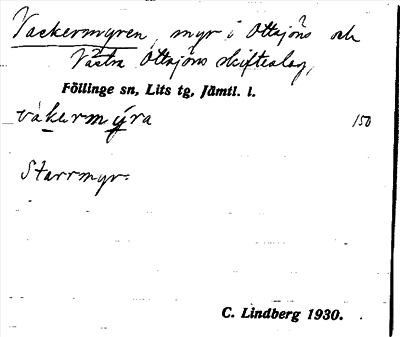 Vackermyren, myr i Ottsjöns och
Västra Ottsjöns skifteslag,
Föllinge sn, Lits tg, Jämtl. l.
våkermy̆ra 150
Starrmyr.
C. Lindberg 1930.